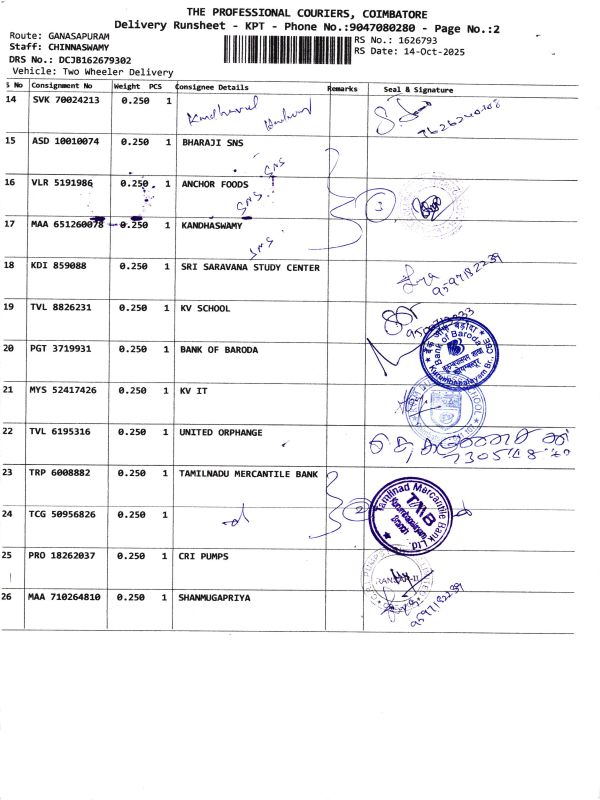 THE PROFESSIONAL COURIERS, COIMBATORE
Delivery Runsheet - KPT - Phone No.:9047080280 - Page No.:2
Route: GANASAPURAM
RS No.: 1626793
Staff: CHINNASWAMY
RS Date: 14-Oct-2025
DRS No.: DCJB162679302
Vehicle: Two Wheeler Delivery
S No Consignment No Weight PCS Consignee Details Remarks Seal & Signature
14 SVK 70024213 0.250 1
15 ASD 10010074 0.250 1 BHARAJI SNS
SNS
16 VLR 5191986 0.250 1 ANCHOR FOODS
SNS 3
17 MAA 651260078 0.250 1 KANDHASWAMY
SNS
18 KDI 859088 0.250 1 SRI SARAVANA STUDY CENTER
9597182239
19 TVL 8826231 0.250 1 KV SCHOOL
20 PGT 3719931 0.250 1 BANK OF BARODA
बैंक ऑफ़ बड़ौदा
Bank of Baroda
Kurumbapalayam Br., CBE
21 MYS 52417426 0.250 1 KV IT
22 TVL 6195316 0.250 1 UNITED ORPHANGE
23 TRP 6008882 0.250 1 TAMILNADU MERCANTILE BANK
2
Tamilnad Mercantile Bank Ltd.
TMB
Kurumbapalayam
Branch
24 TCG 50956826 0.250 1
25 PRO 18262037 0.250 1 CRI PUMPS
26 MAA 710264810 0.250 1 SHANMUGAPRIYA
9597182239